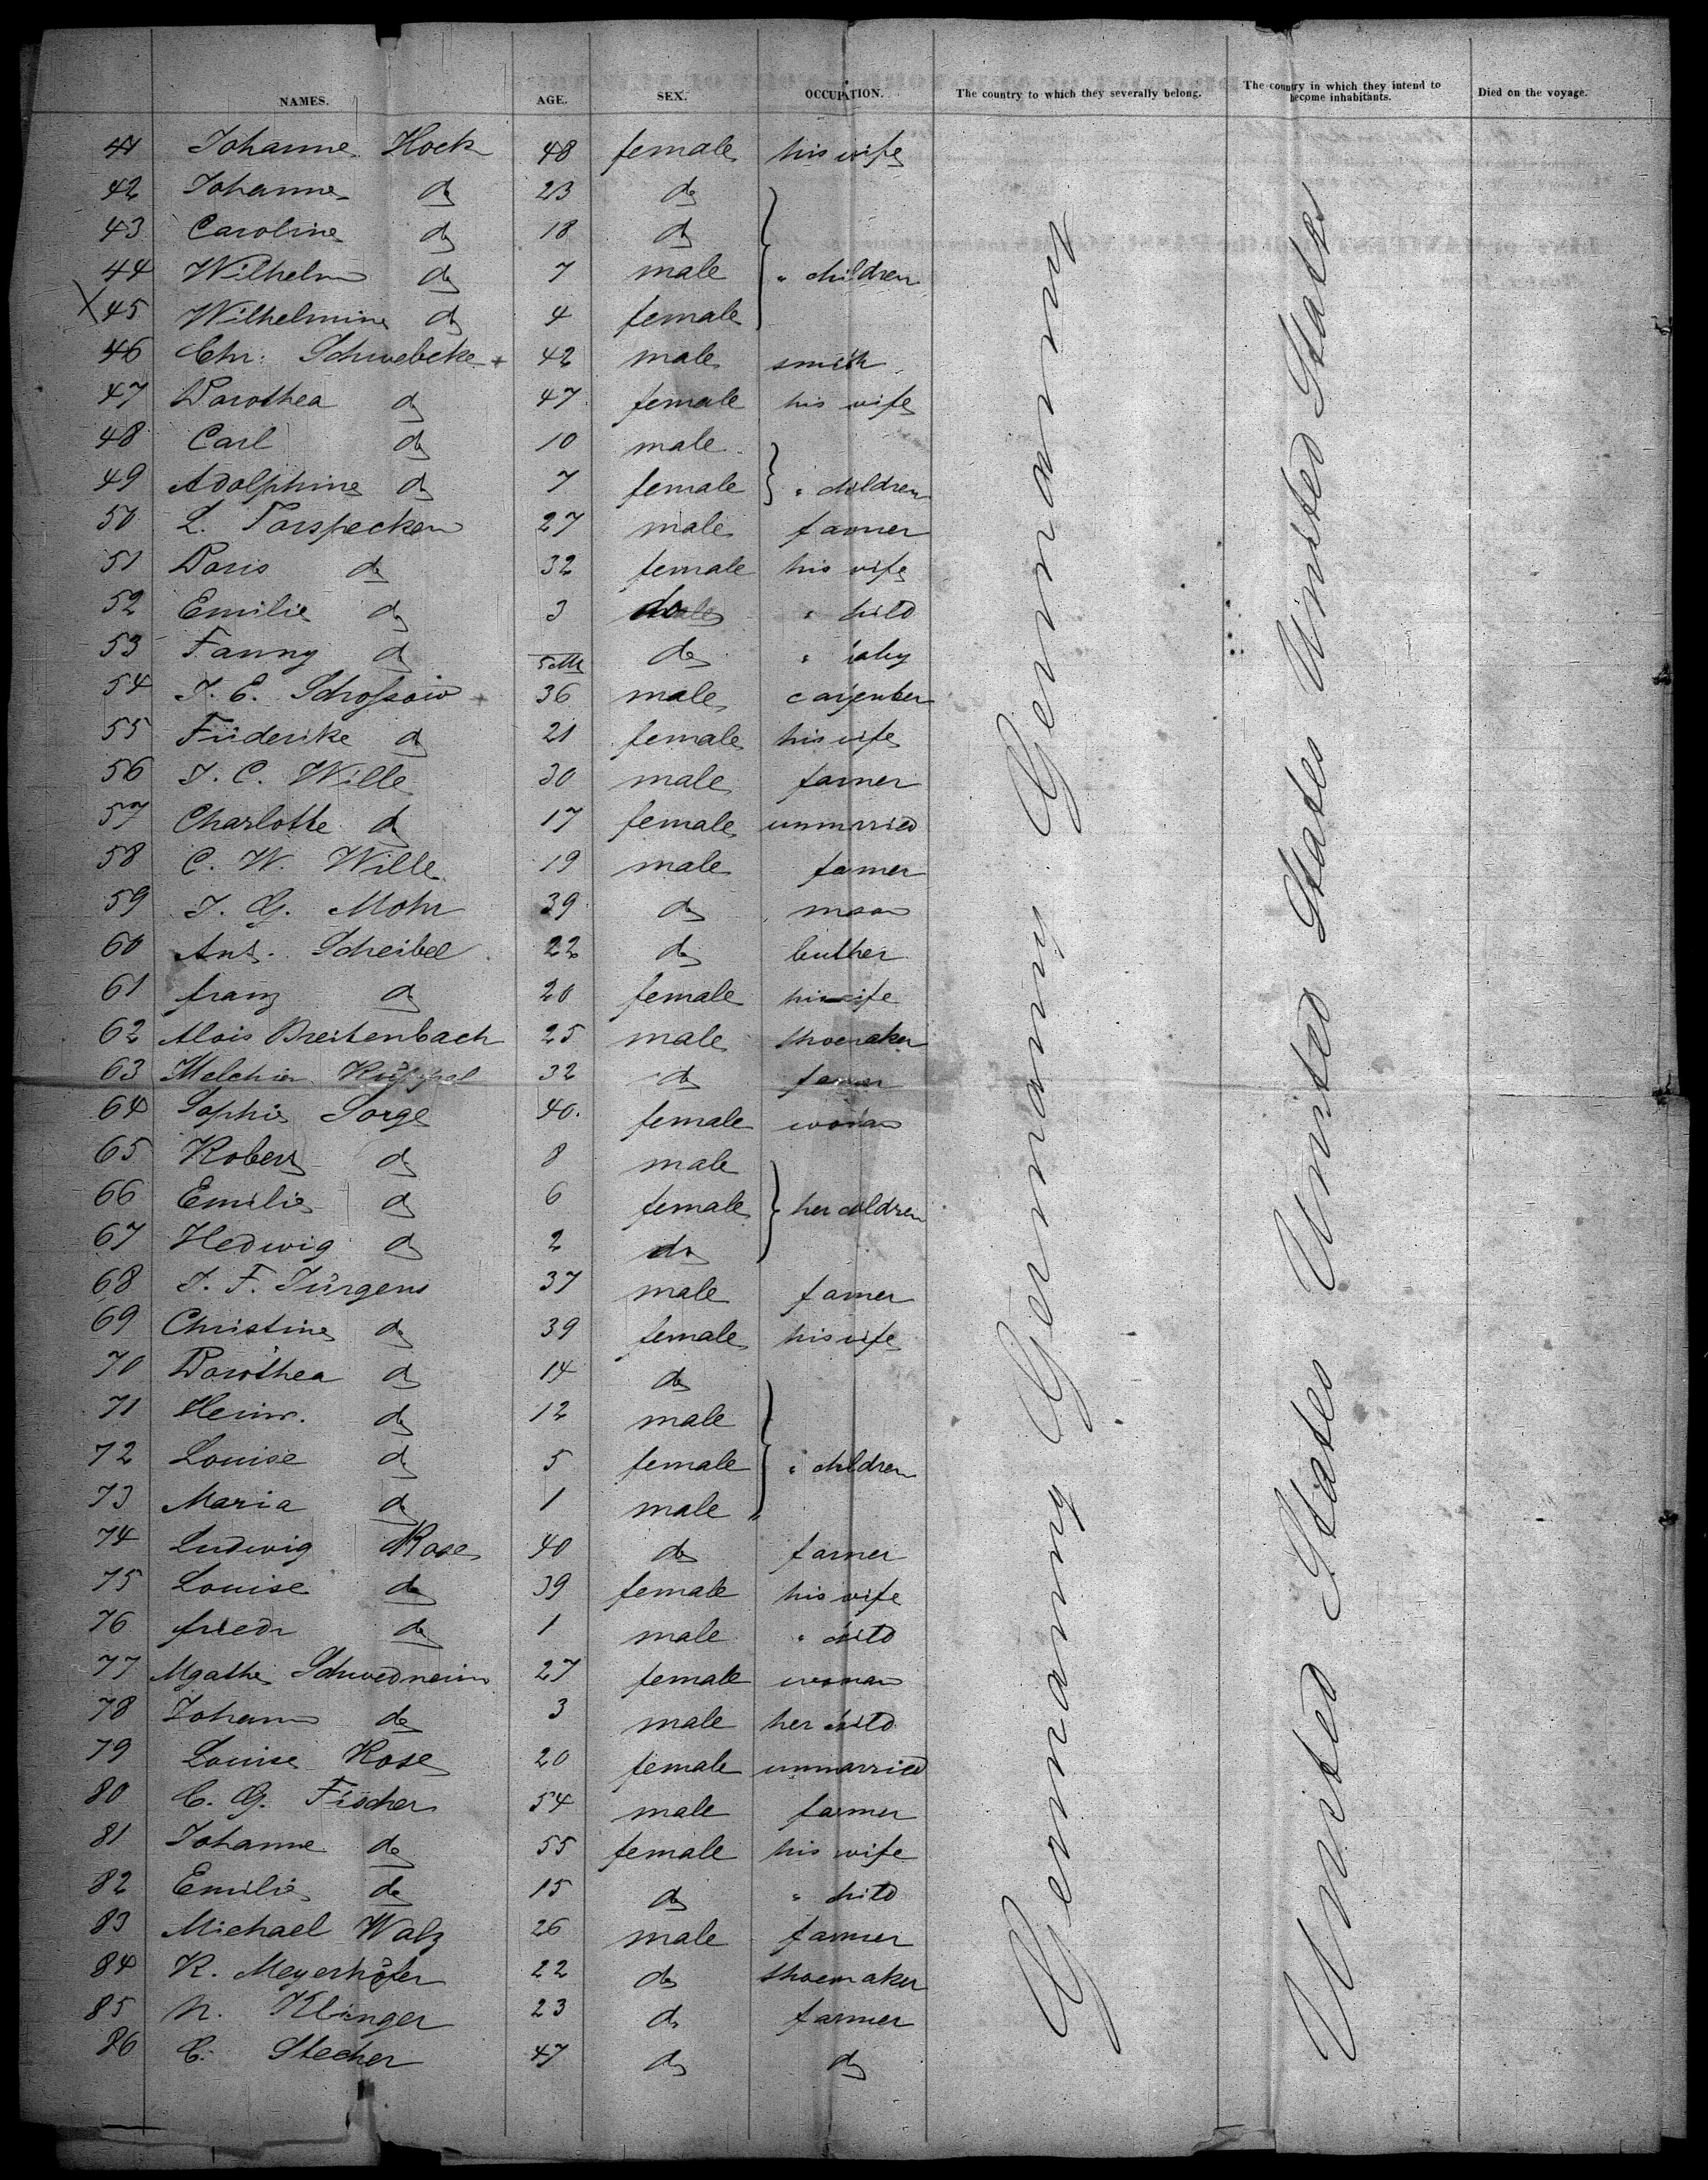 NAMES. AGE. SEX. OCCUPATION. The country to which they severally belong. The country in which they intend to become inhabitants. Died on the voyage.
41 Johanne Hock 48 female his wife
42 Johanne do 23 do
43 Caroline do 18 do
44 Wilhelm do 7 male " children
X 45 Wilhelmine do 4 female
46 Chr. Schwebcke + 42 male smith
47 Dorothea do 47 female his wife
48 Carl do 10 male
49 Adolphine do 7 female " children
50 L. Torspecken 27 male farmer
51 Doris do 32 female his wife
52 Emilie do 3 do " child
53 Fanny do 5 M do " baby
54 J. E. 36 male carpenter
55 Friederike do 21 female his wife
56 J. C. Wille 30 male farmer
57 Charlotte do 17 female unmarried
58 C. W. Wille 19 male farmer
59 J. G. Mohr 39 do mason
60 Ant. Scheibel 22 do
61 franz do 20 female his wife
62 Alois Breitenbach 25 male shoemaker
63 Melchior Rüppel 32 do farmer
64 Sophie Sorge 40 female woman
65 Robert do 8 male
66 Emilie do 6 female her children
67 Hedwig do 2 do
68 J. F. Jürgens 37 male farmer
69 Christine do 39 female his wife
70 Dorothea do 14 do
71 Heinr. do 12 male
72 Louise do 5 female " children
73 Maria do 1 male "
74 Ludwig Rose 40 do farmer
75 Louise do 39 female his wife
76 friedr do 1 male " child
77 Agathe 27 female woman
78 Johann do 3 male her child
79 Louise Rose 20 female unmarried
80 C. G. Fischer 54 male farmer
81 Johanne do 55 female his wife
82 Emilie do 15 do " child
83 Michael Walz 26 male farmer
84 K. Meyerhöfer 22 do shoemaker
85 N. Klinger 23 do farmer
86 C. Stecher 47 do do
Germany Germany Germany
United States United States United States